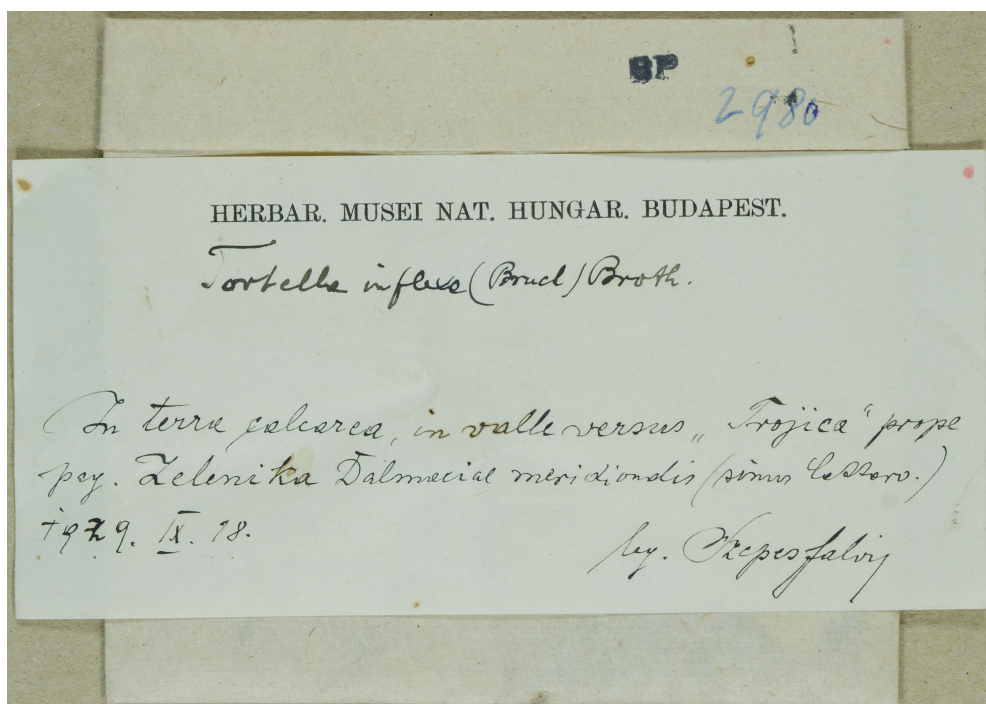 BP
2980
HERBAR. MUSEI NAT. HUNGAR. BUDAPEST.
Tortella inflexa (Bruch) Broth.
In terra calcarea, in valle versus „Trojica“ prope
pag. Zelenika Dalmaciae meridionalis (sinus Cattaro.)
1929. IX. 18.
leg. Szepesfalvy